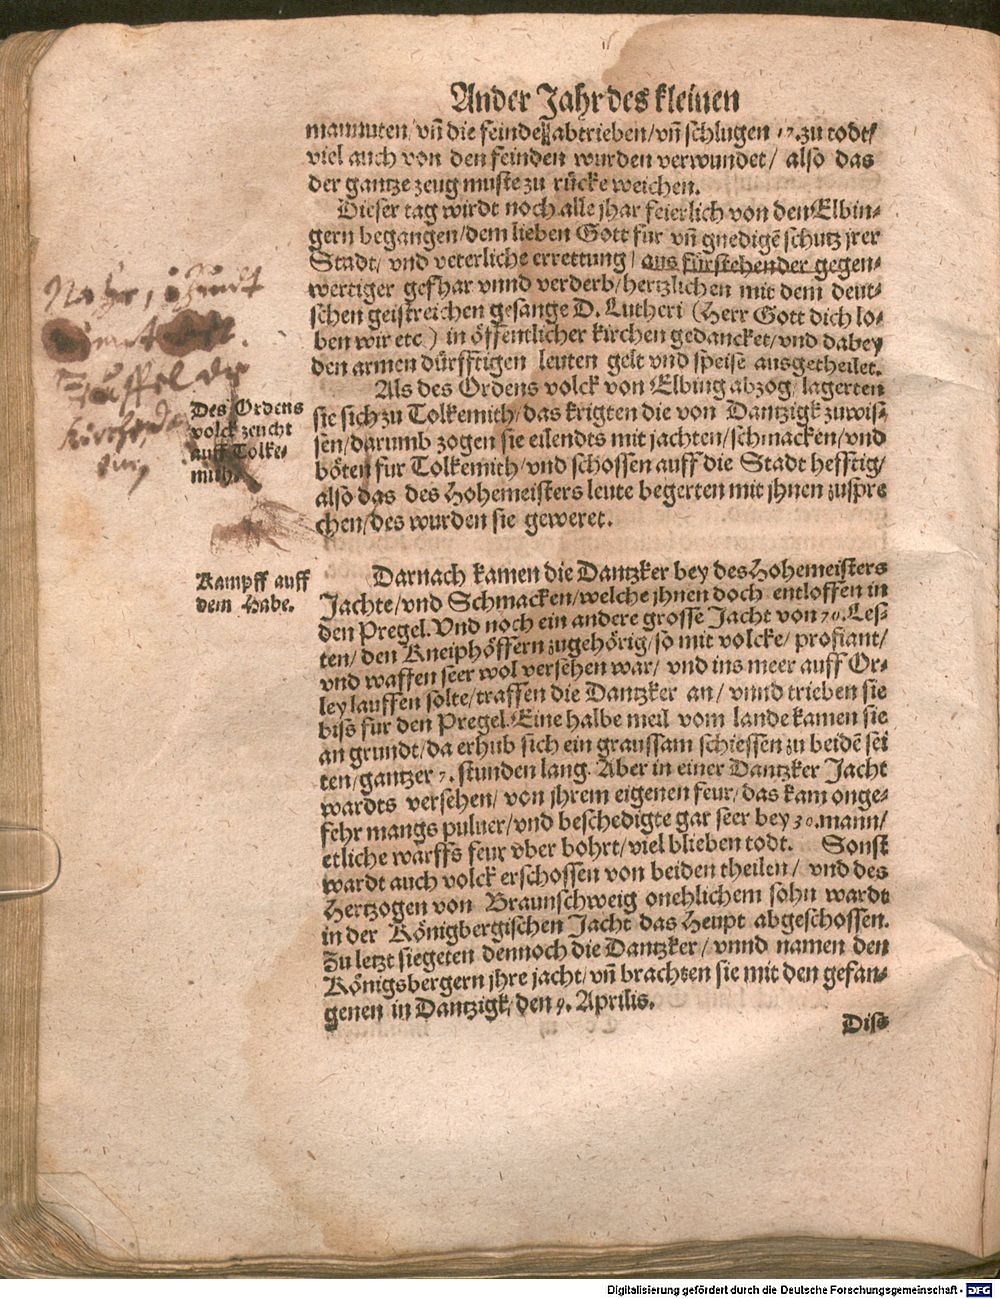 Ander Jahr des kleinen
mannuten/ vñ die feinde abtrieben/ vñ schlugen 17. zu todt/
viel auch von den feinden wurden verwundet/ also das
der gantze zeug muste zu rücke weichen.
Dieser tag wirdt noch alle jhar feierlich von den Elbin-
gern begangen/ dem lieben Gott fur vñ gnedigē schutz jrer
Stadt/ vnd veterliche errettung/ aus fürstehender gegen-
wertiger gefhar vnnd verderb/ hertzlichen mit dem deut-
schen geistreichen gesange D. Lutheri (Herr Gott dich lo-
ben wir etc.) in öffentlicher kirchen gedancket/ vnd dabey
den armen dürfftigen leuten gelt vnd speise ausgetheilet.
Als des Ordens volck von Elbing abzog/ lagerten
sie sich zu Tolkemith/ das krigten die von Dantzigk zuwis-
sen/ darumb zogen sie eilendts mit jachten/ schmacken/ vnd
böten fur Tolkemith/ vnd schossen auff die Stadt hefftig/
also das des Hohemeisters leute begerten mit jhnen zuspre
chen/ des wurden sie geweret.
Des Ordens
volck zeucht
auff Tolke-
mith.
Kampff auff
dem Habe.
Darnach kamen die Dantzker bey des Hohemeisters
Jachte/ vnd Schmacken/ welche jhnen doch entloffen in
den Pregel. Vnd noch ein andere grosse Jacht von 70. Les-
ten/ den Kneiphöffern zugehörig/ so mit volcke/ profiant/
vnd waffen seer wol versehen war/ vnd ins meer auff Or-
ley lauffen solte/ traffen die Dantzker an/ vnnd trieben sie
biss fur den Pregel. Eine halbe meil vom lande kamen sie
an grundt/ da erhub sich ein graussam schiessen zu beidē sei
ten/ gantzer 7. stunden lang. Aber in einer Dantzker Jacht
wardts versehen/ von jhrem eigenen feur/ das kam onge-
fehr mangs puluer/ vnd beschedigte gar seer bey 30. mann/
etliche warffs feur vber bohrt/ viel blieben todt. Sonst
wardt auch volck erschossen von beiden theilen/ vnd des
Hertzogen von Braunschweig onehlichem sohn wardt
in der Königbergischen Jacht das Heupt abgeschossen.
Zu letzt siegeten dennoch die Dantzker/ vnnd namen den
Königsbergern jhre jacht/ vñ brachten sie mit den gefan-
genen in Dantzigk/ den 9. Aprilis.
Dise
Digitalisierung gefördert durch die Deutsche Forschungsgemeinschaft - DFG